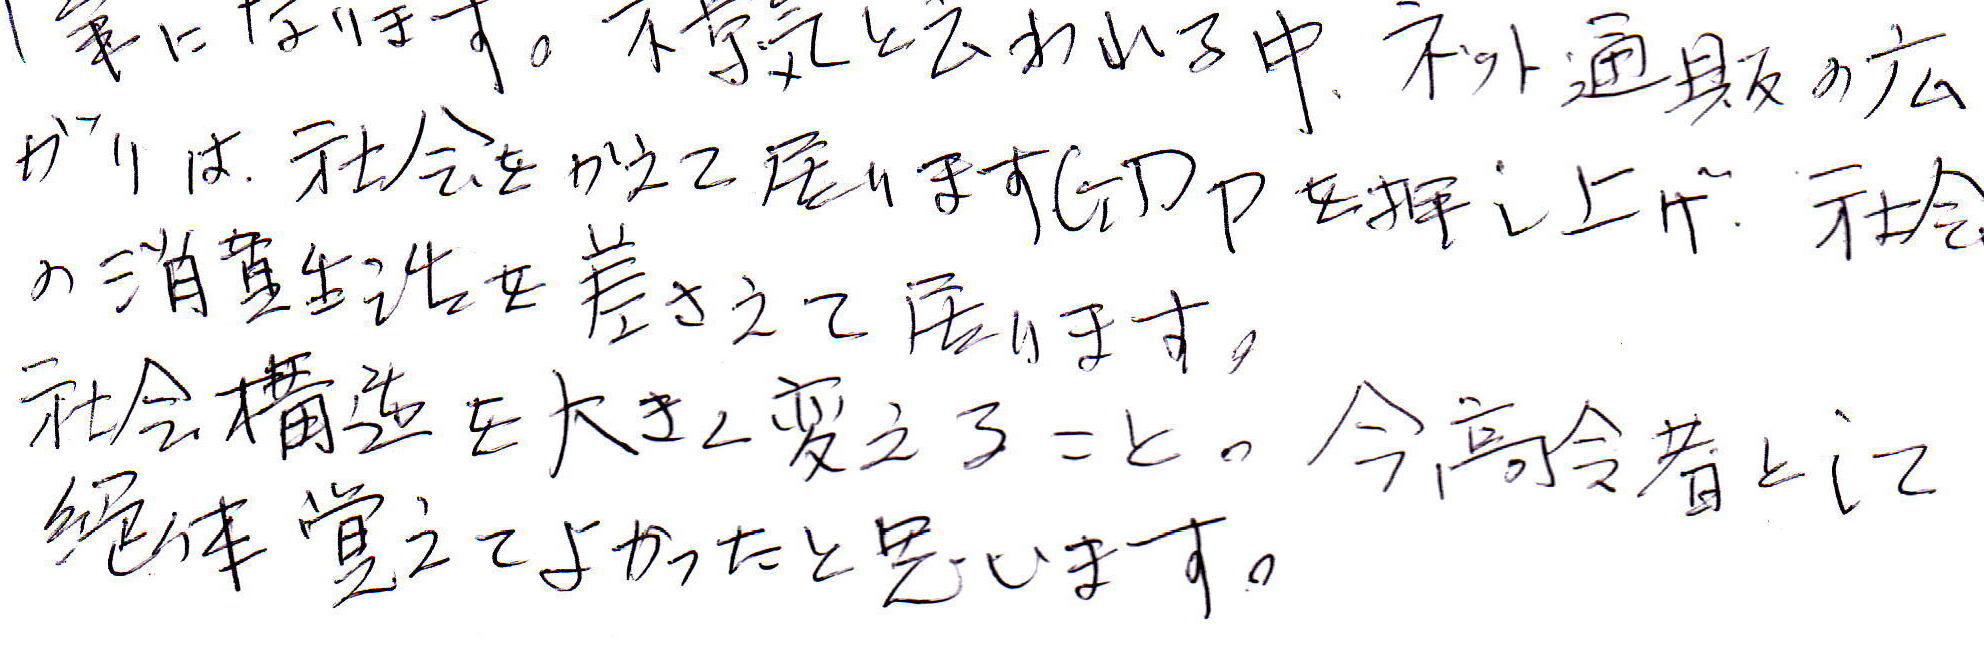 事になります。不景気と云われる中、ネット通販の広
がりは、社会をかえて居りますGDPを押し上げ、社会
の消費生活を差さえて居ります。
社会構造を大きく変えること。今高令者として
絶体覚えてよかったと思います。